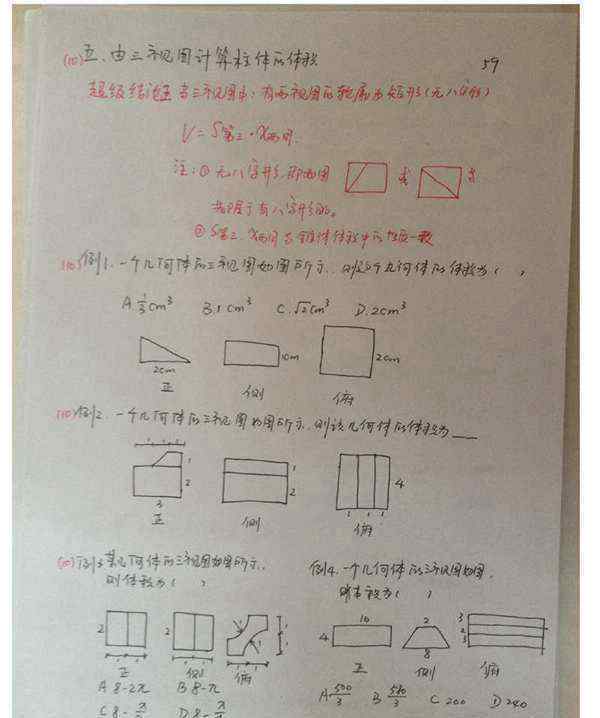 (10) 五、由三视图计算柱体的体积
59
超级结论 当三视图中:有两视图的轮廓为矩形(无八字形)
V=S第三·X两同.
注:① 无八字形,即如图 或
都属于有八字形的。
② S第三、X两同与锥体体积中的性质一致
(10)例1.一个几何体的三视图如图所示,则这个几何体的体积为( )
A.1/3cm³ B.1cm³ C.√2cm³ D.2cm³
1cm
2cm
2cm
正 侧 俯
(10)例2.一个几何体的三视图如图所示,则该几何体的体积为___
1 1 1
1 1
2 2 4
3 1 1 1
正 侧 俯
(10)例3.某几何体的三视图如图所示,
则体积为( )
2 2 1 1
1 1 1 1 1 1
正 侧 俯
A 8-2π B 8-π
例4.一个几何体的三视图如图,
则体积为( )
10 2 3
4 2
8 3
正 侧 俯
A.500/3 B 560/3 C 200 D 240